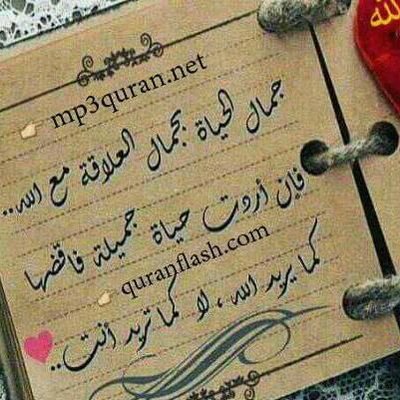 الله
mp3quran.net
جمال الحياة بجمال العلاقة مع الله..
فإن أردت حياة جميلة فاقضها
quranflash.com
كما يريد الله ، لا كما تريد أنت..